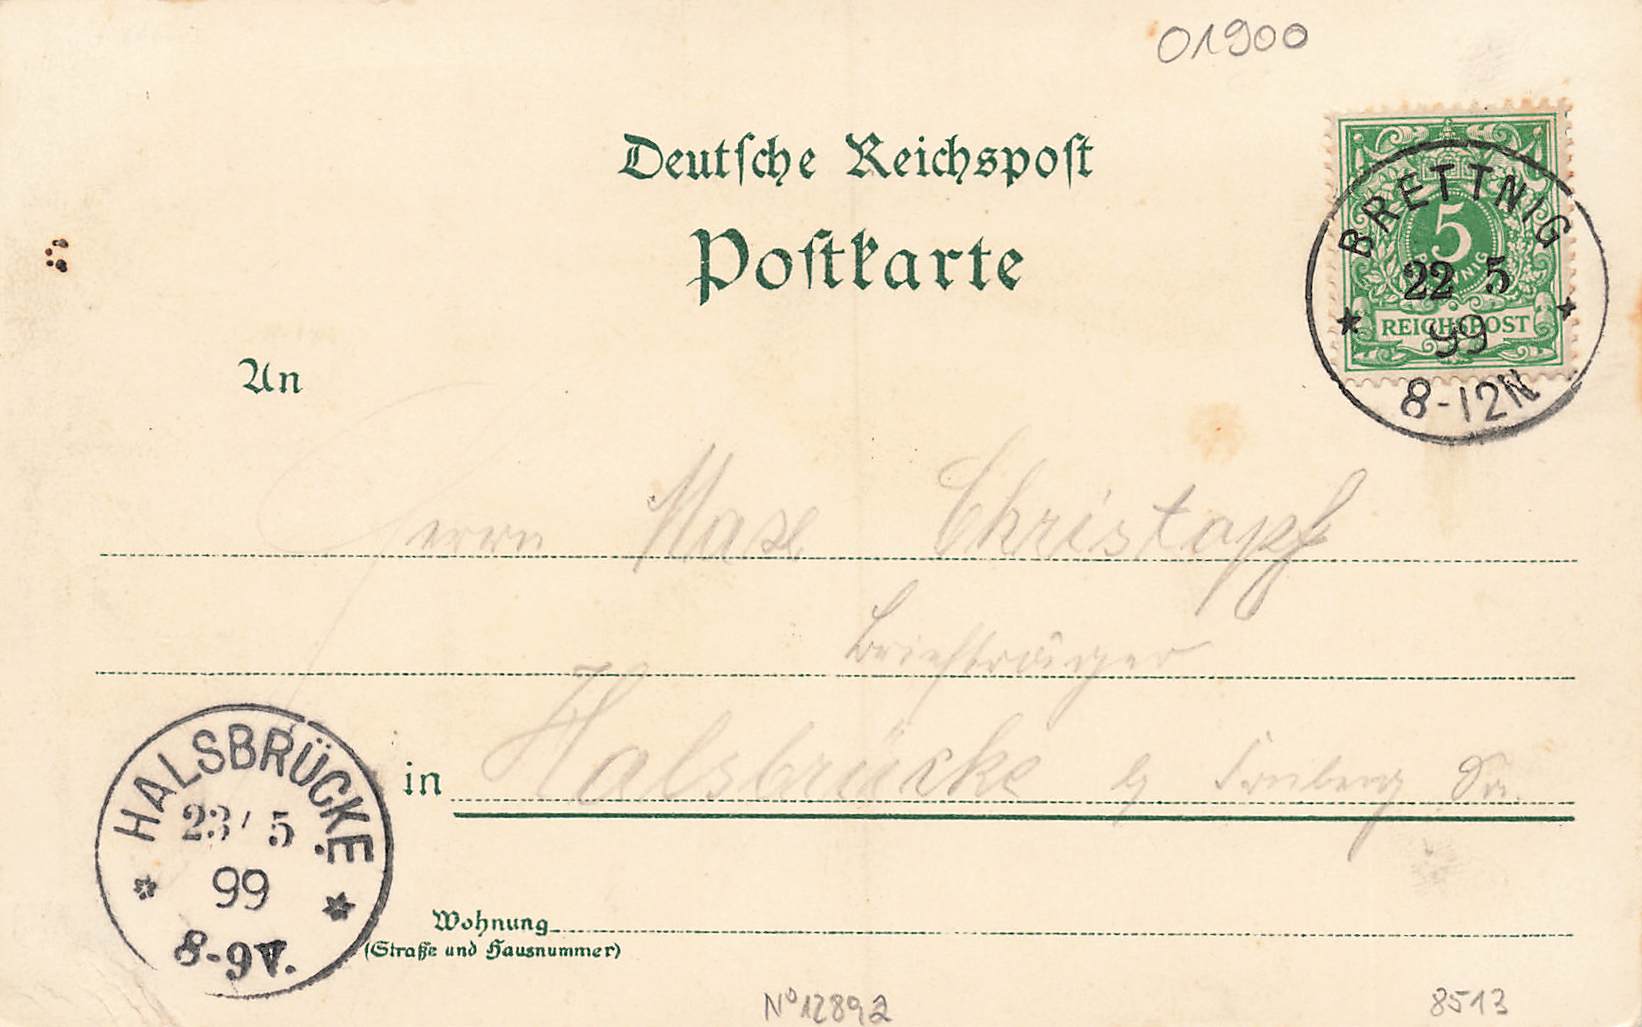 01900
Deutsche Reichspost
Postkarte
5
PFENNIG
REICHSPOST
BRETTNIG
22 5
99
8-12N
An
Herrn Max Christopf
Briefträger
in Halsbrücke b/ Freiberg Sa.
HALSBRÜCKE
23/ 5
99
8-9V.
Wohnung
(Straße und Hausnummer)
No 12892
8513